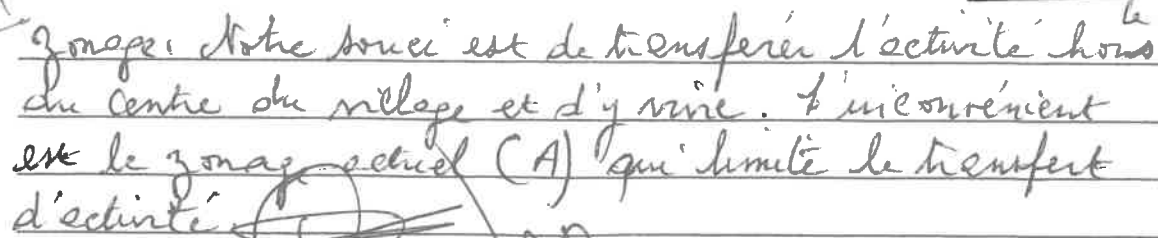 zonage. Notre souci est de transférer l'activité hors
du centre du village et d'y vivre. L'inconvénient
est le zonage actuel (A) qui limite le transfert
d'activité.